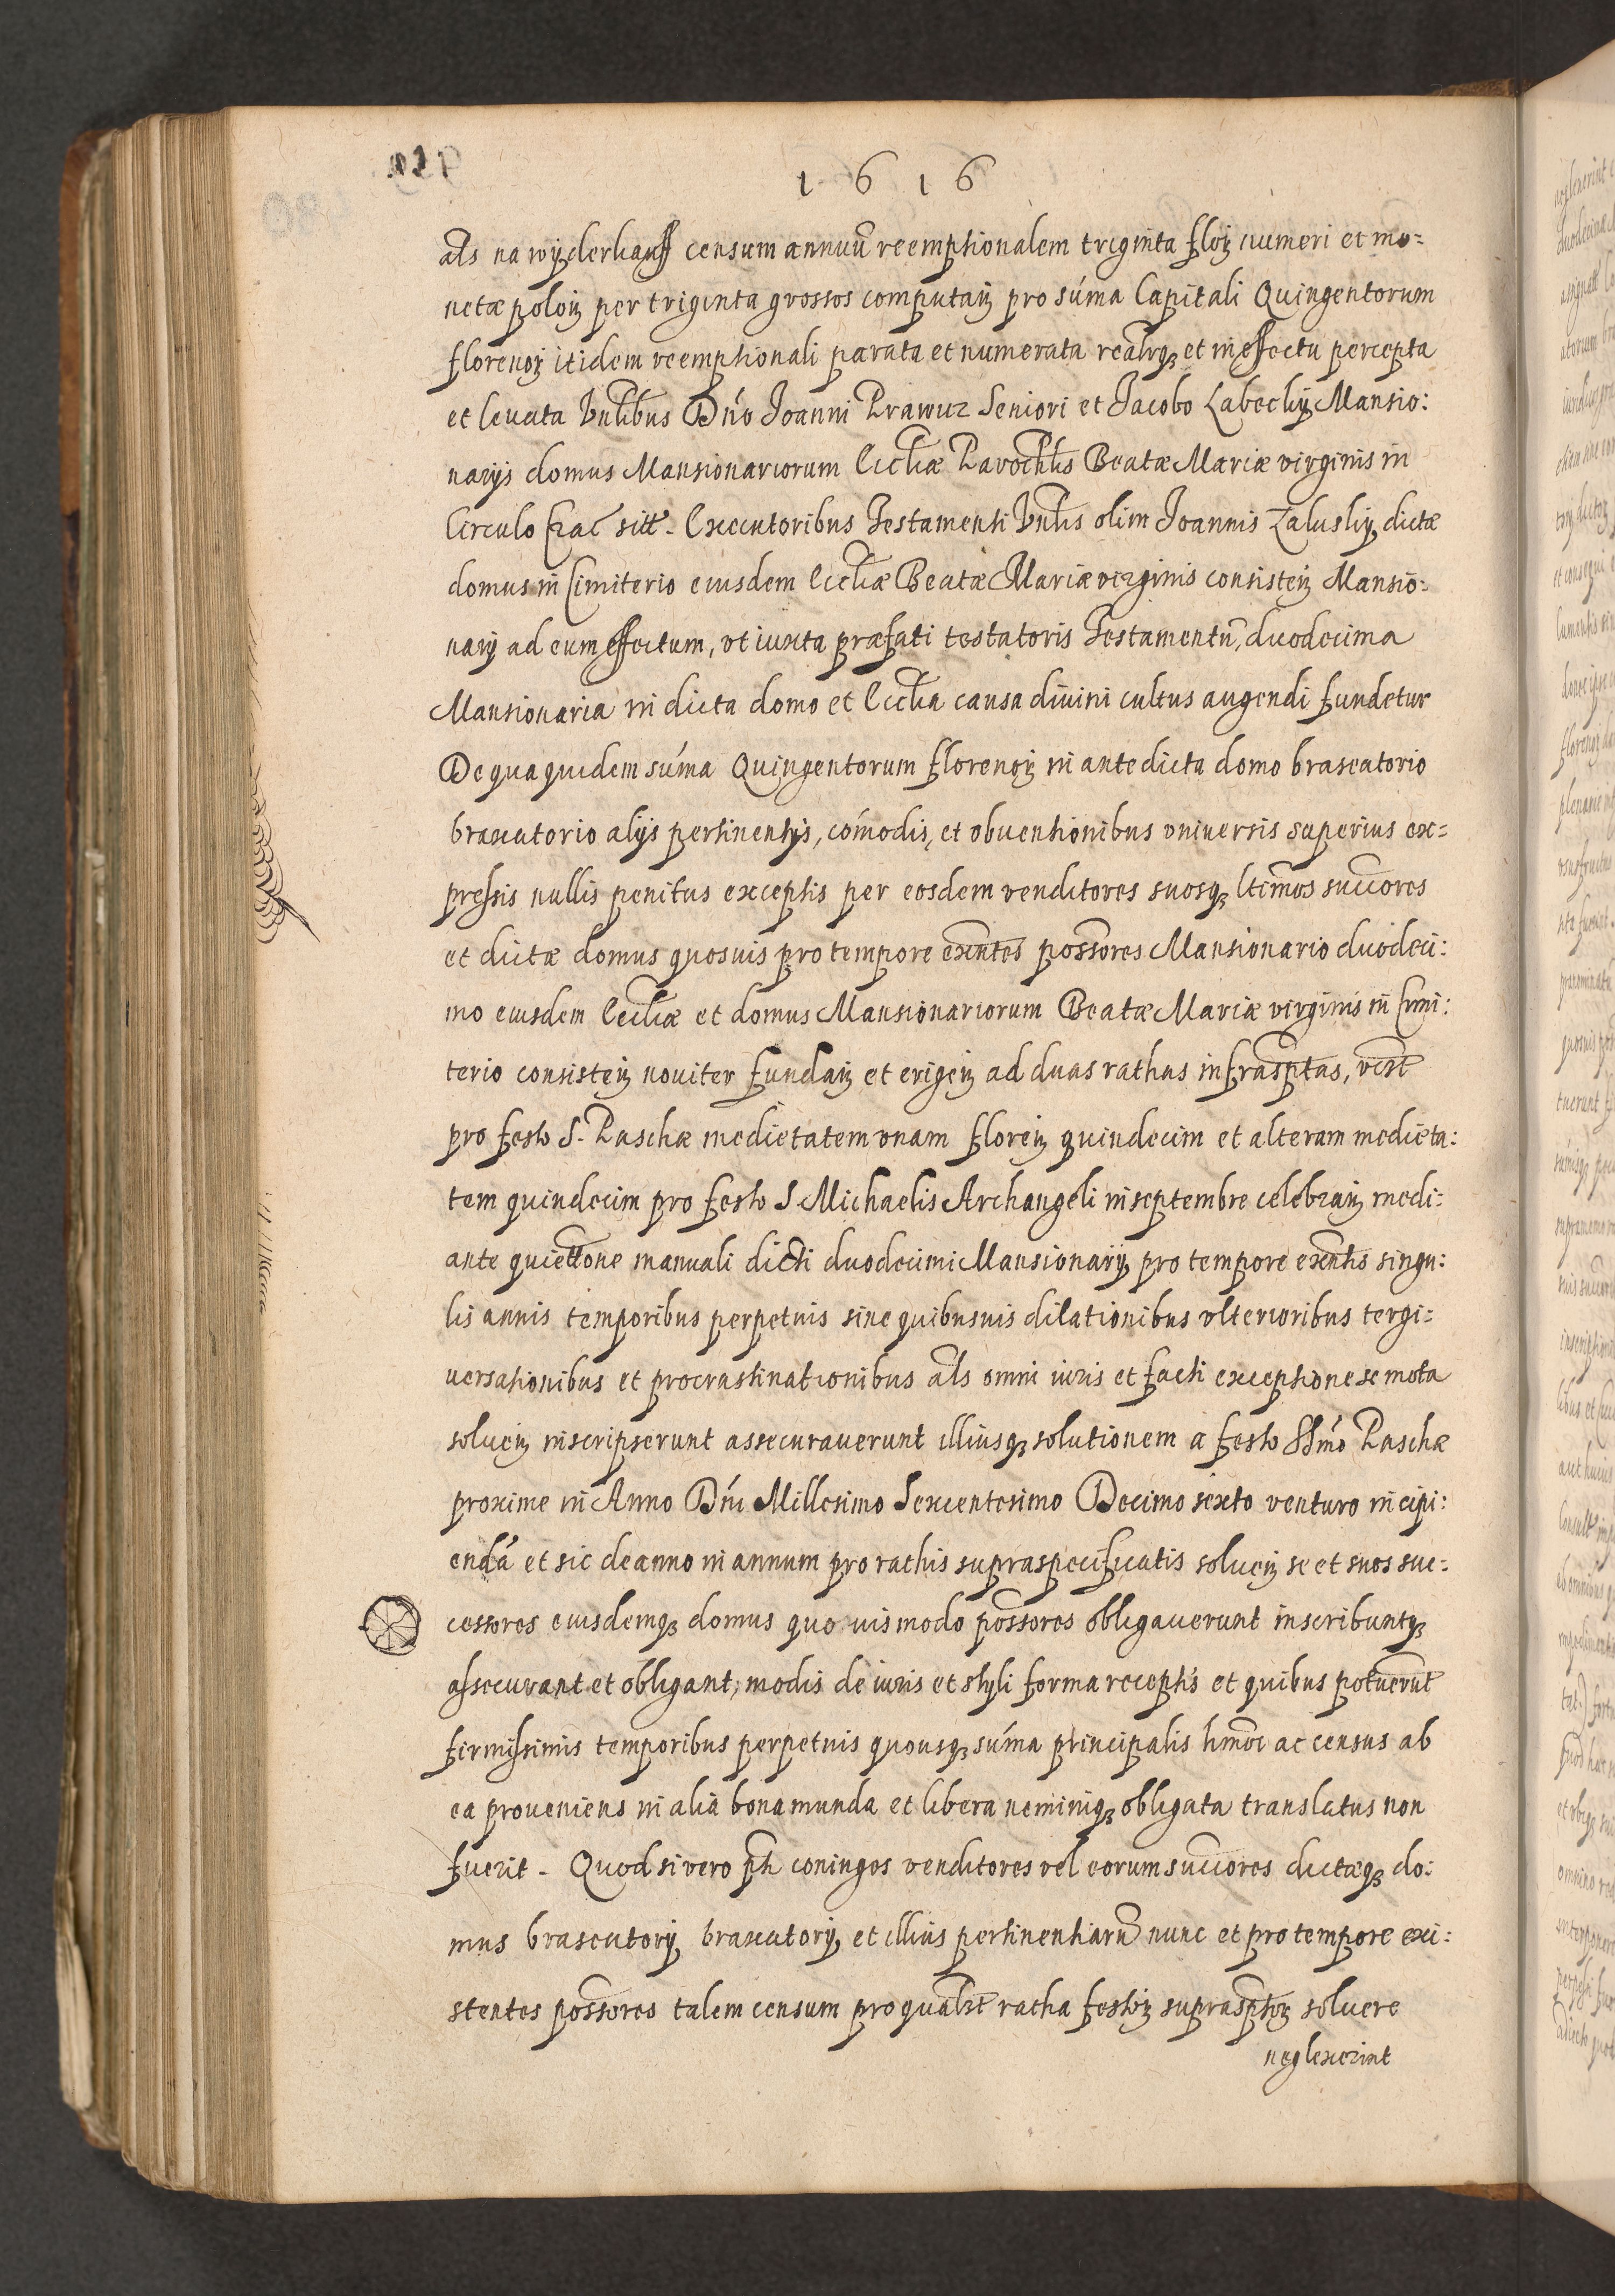 1616
als na wyderkauff censum annuū reemptionalem triginta floꝝ numeri et mo=
netæ poloꝝ per triginta grossos computaꝝ pro súma Capitali Quingentorum
florenoꝝ itidem reemptionali parata et numerata realrqꝫ et in effectu percepta
et levata Vnlibus Dńo Joanni Prawuz Seniori et Jacobo Labecky Mansio:
narijs domus Mansionariorum Eccliæ Parochlis Beatæ Mariæ virginis in
Circulo Crac sitt. Executoribus Testamenti Vnlis olim Joannis Zalusky dictæ
domus in Cimiterio eiusdem Eccliæ Beatæ Mariæ virginis consisteꝝ Mansio:
narij ad eum effectum, vt iuxta præfati testatoris Testamentū, duodecima
Mansionaria in dicta domo et Ecclia causa diuini cultus augendi fundetur
De qua quidem súma Quingentorum florenoꝝ in antedicta domo braseatorio
braxatorio alijs pertinentijs, cómodis, et obuentionibus vniuersis superius ex=
pressis nullis penitus exceptis per eosdem venditores suosqꝫ ltimos succores
et dictæ domus quosuis pro tempore exntes possores Mansionario duodeci:
mo eiusdem Eccliæ et domus Mansionariorum Beatæ Mariæ virginis in Cimi:
terio consisteꝝ nouiter fundaꝝ et erigeꝝ ad duas rathas infrasptas, vcꝫt
pro festo S. Paschæ medietatem vnam floreꝝ quindecim et alteram medieta:
tem quindecim pro festo S Michaelis Archangeli in septembre celebraꝝ medi:
ante quiettone manuali dicti duodecimi Mansionarij pro tempore exntis singu:
lis annis temporibus perpetuis sine quibusuis dilationibus vlterioribus tergi=
uersationibus et procrastinationibus als omni iuris et facti exceptione semota
solueꝝ inscripserunt assecurauerunt illiusqꝫ solutionem a festo SSḿo Paschæ
proxime in Anno Dńi Millesimo Sexcentesimo Decimo sexto venturo incipi:
endá et sic de anno in annum pro rathis supraspecificatis solueꝝ se et suos suc:
cessores eiusdemqꝫ domus quo uis modo possores obligauerunt inscribuntqꝫ
assecurant et obligant, modis de iuris et styli forma receptis et quibus potuerūt
firmissimis temporibus perpetuis quousqꝫ súma principalis hmoi ac census ab
ea proueniens in alia bona munda et libera neminiqꝫ obligata translatus non
fuerit. Quod si vero pti coniuges venditores vel eorum succores dictæqꝫ do:
mus braseatorij braxatorij et illius pertinentiarū nunc et pro tempore exi:
stentes possores talem censum pro qualꝫt ratha festoꝝ suprasptoꝝ soluere
neglexerint